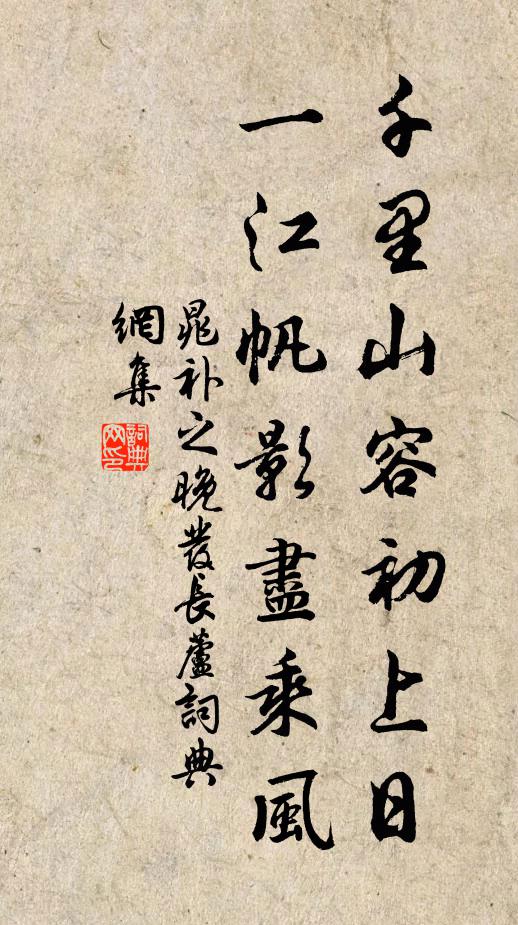 千里山容初上日
一江帆影盡乘風
晁补之晚發長蘆詞典
網集
詞典
网印